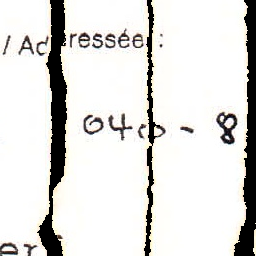 / Adressée :
040 - 8
er